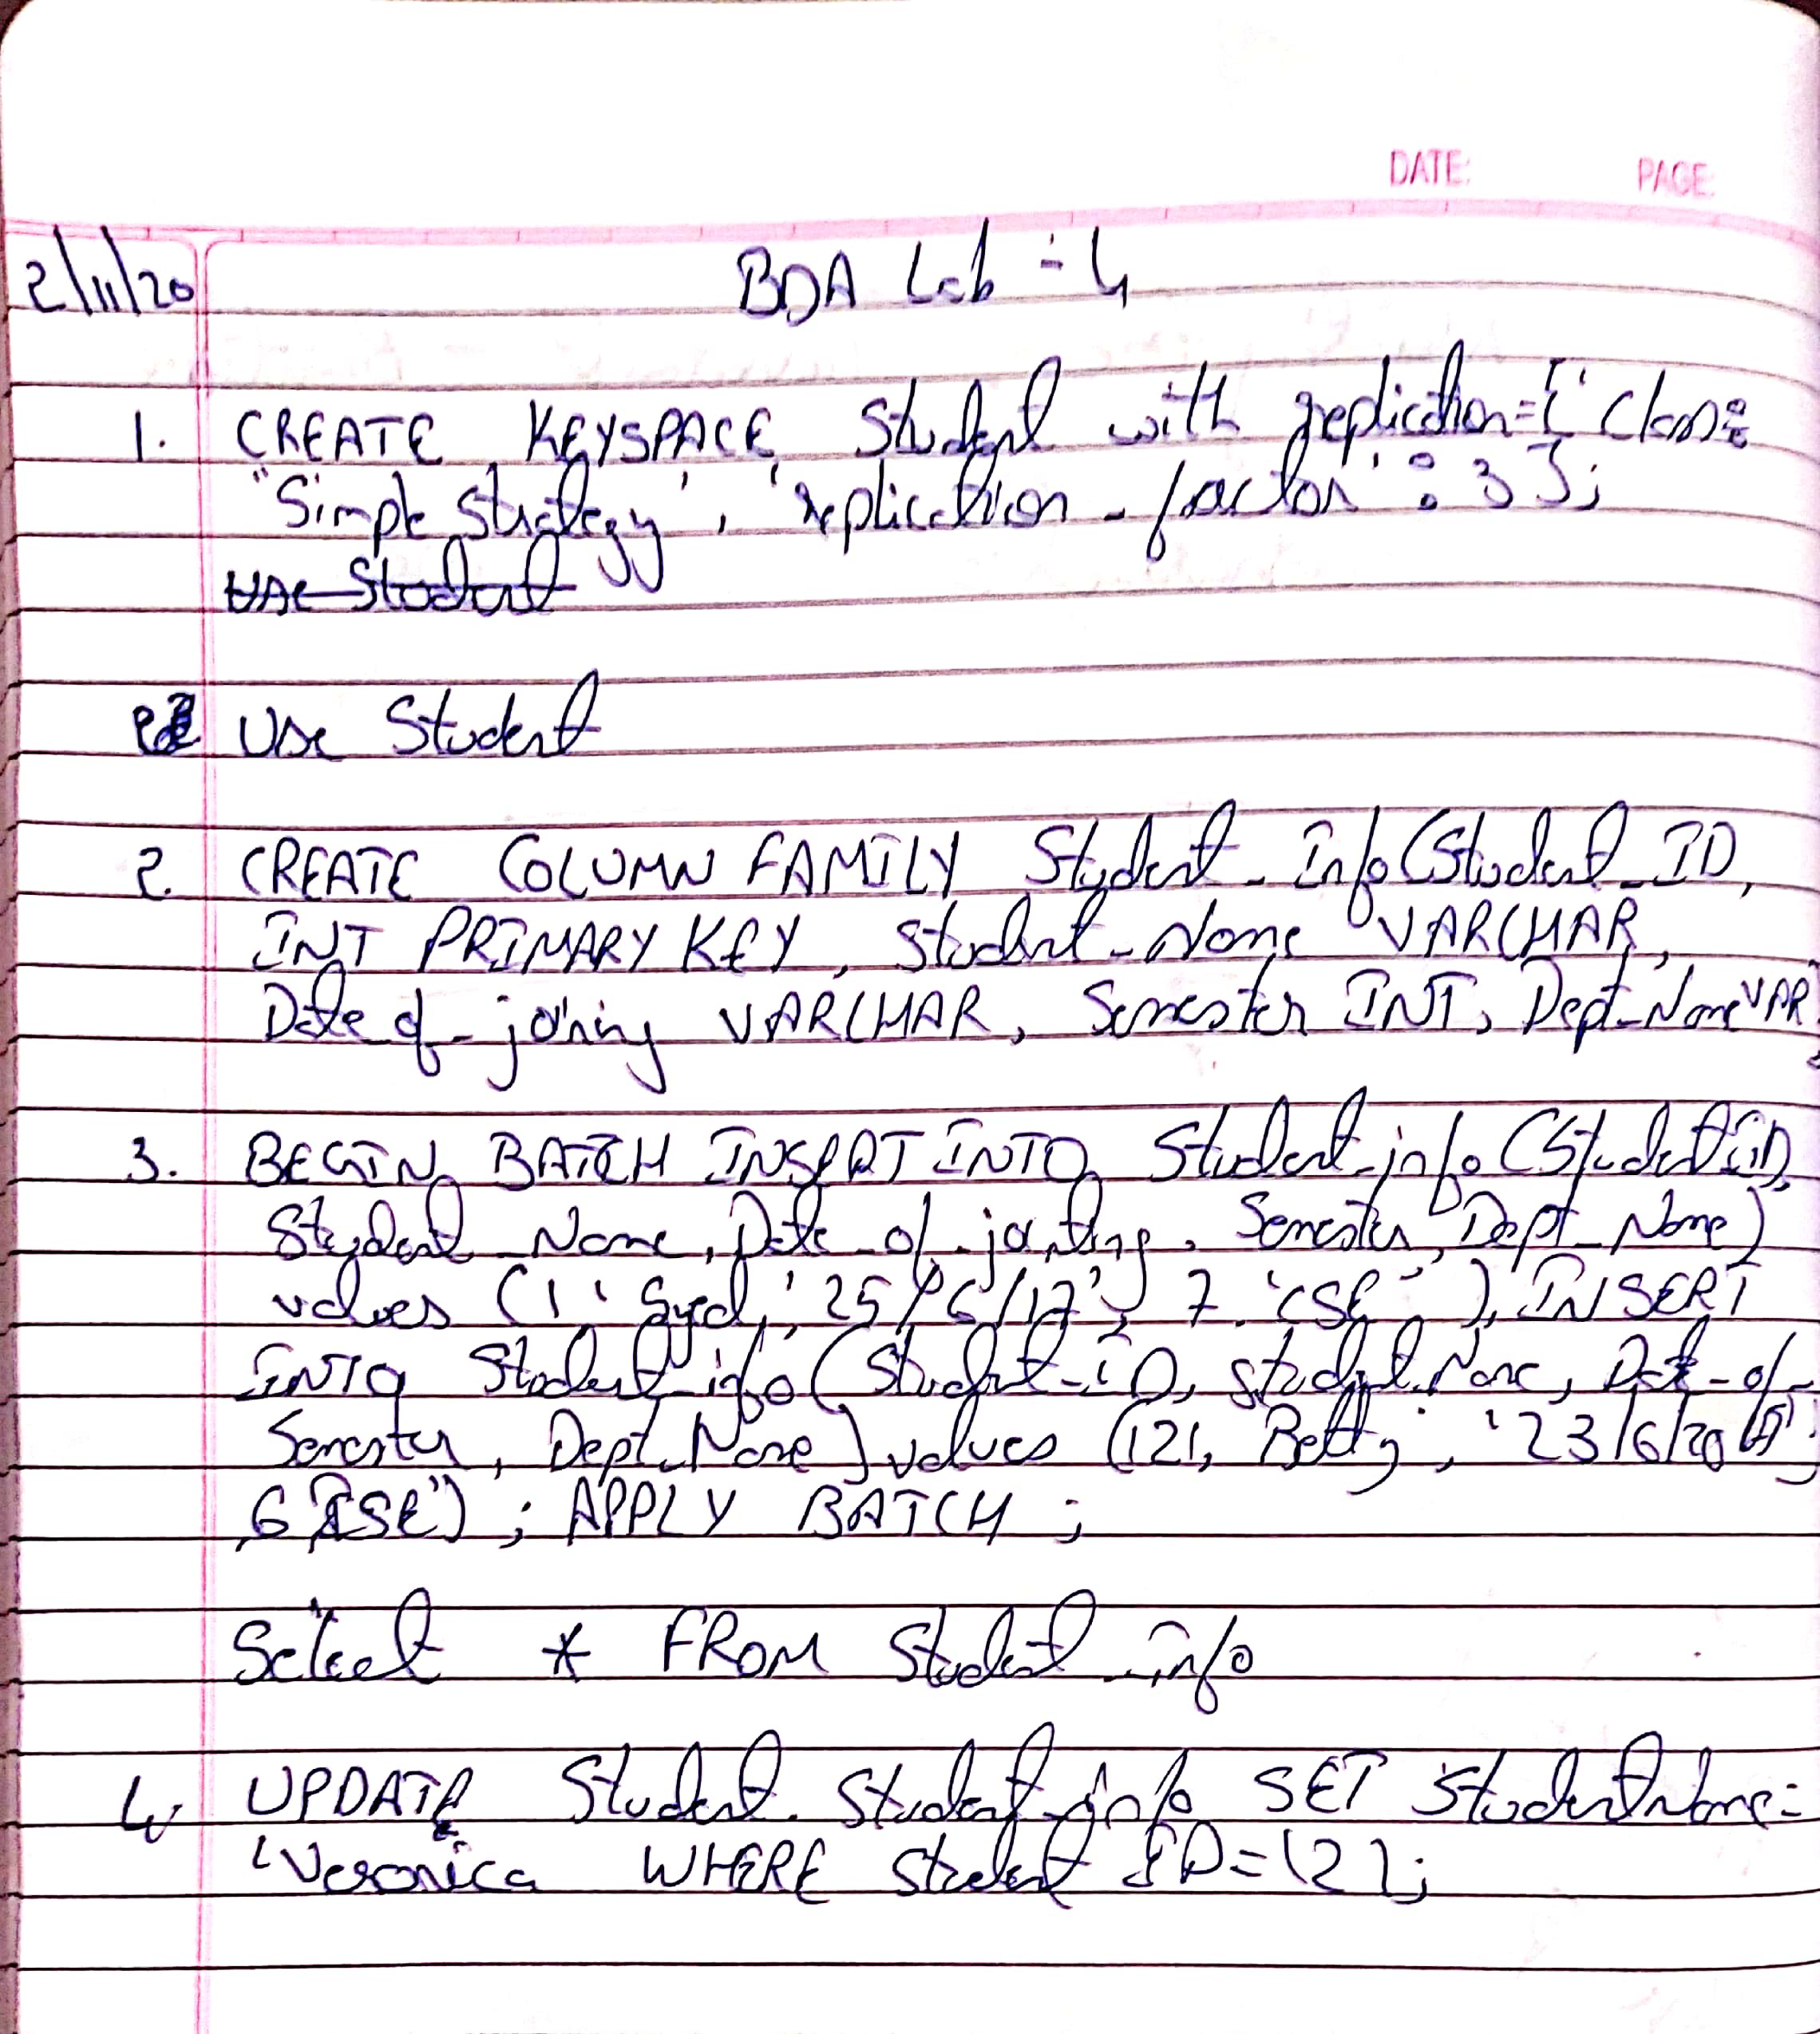 DATE: PAGE:
2/11/20 BDA Lab - 4
1. CREATE KEYSPACE Student with replication={'Class:
"Simple Strategy', 'replication_factor' : 3 };
Use Student
Use Student
2. CREATE COLUMN FAMILY Student_Info(Student_ID,
INT PRIMARY KEY, Student_Name VARCHAR,
Date of_joining VARCHAR, Semester INT, Dept_Name VAR
3. BEGIN BATCH INSERT INTO Student_info (Student ID,
Student_Name, Date_of_joining, Semester, Dept_Name)
values (1 'Syed,' 25/6/17', 7. 'CSE'), INSERT
INTO Student_info (Student_ID, Student Name, Date_of_
Semester, Dept_Name) values (121, Betty', '23/6/20
APPLY BATCH ;
Select * FROM Student_info
4. UPDATE Student. Student_info SET StudentName=
'Veronica WHERE Student ID=121;